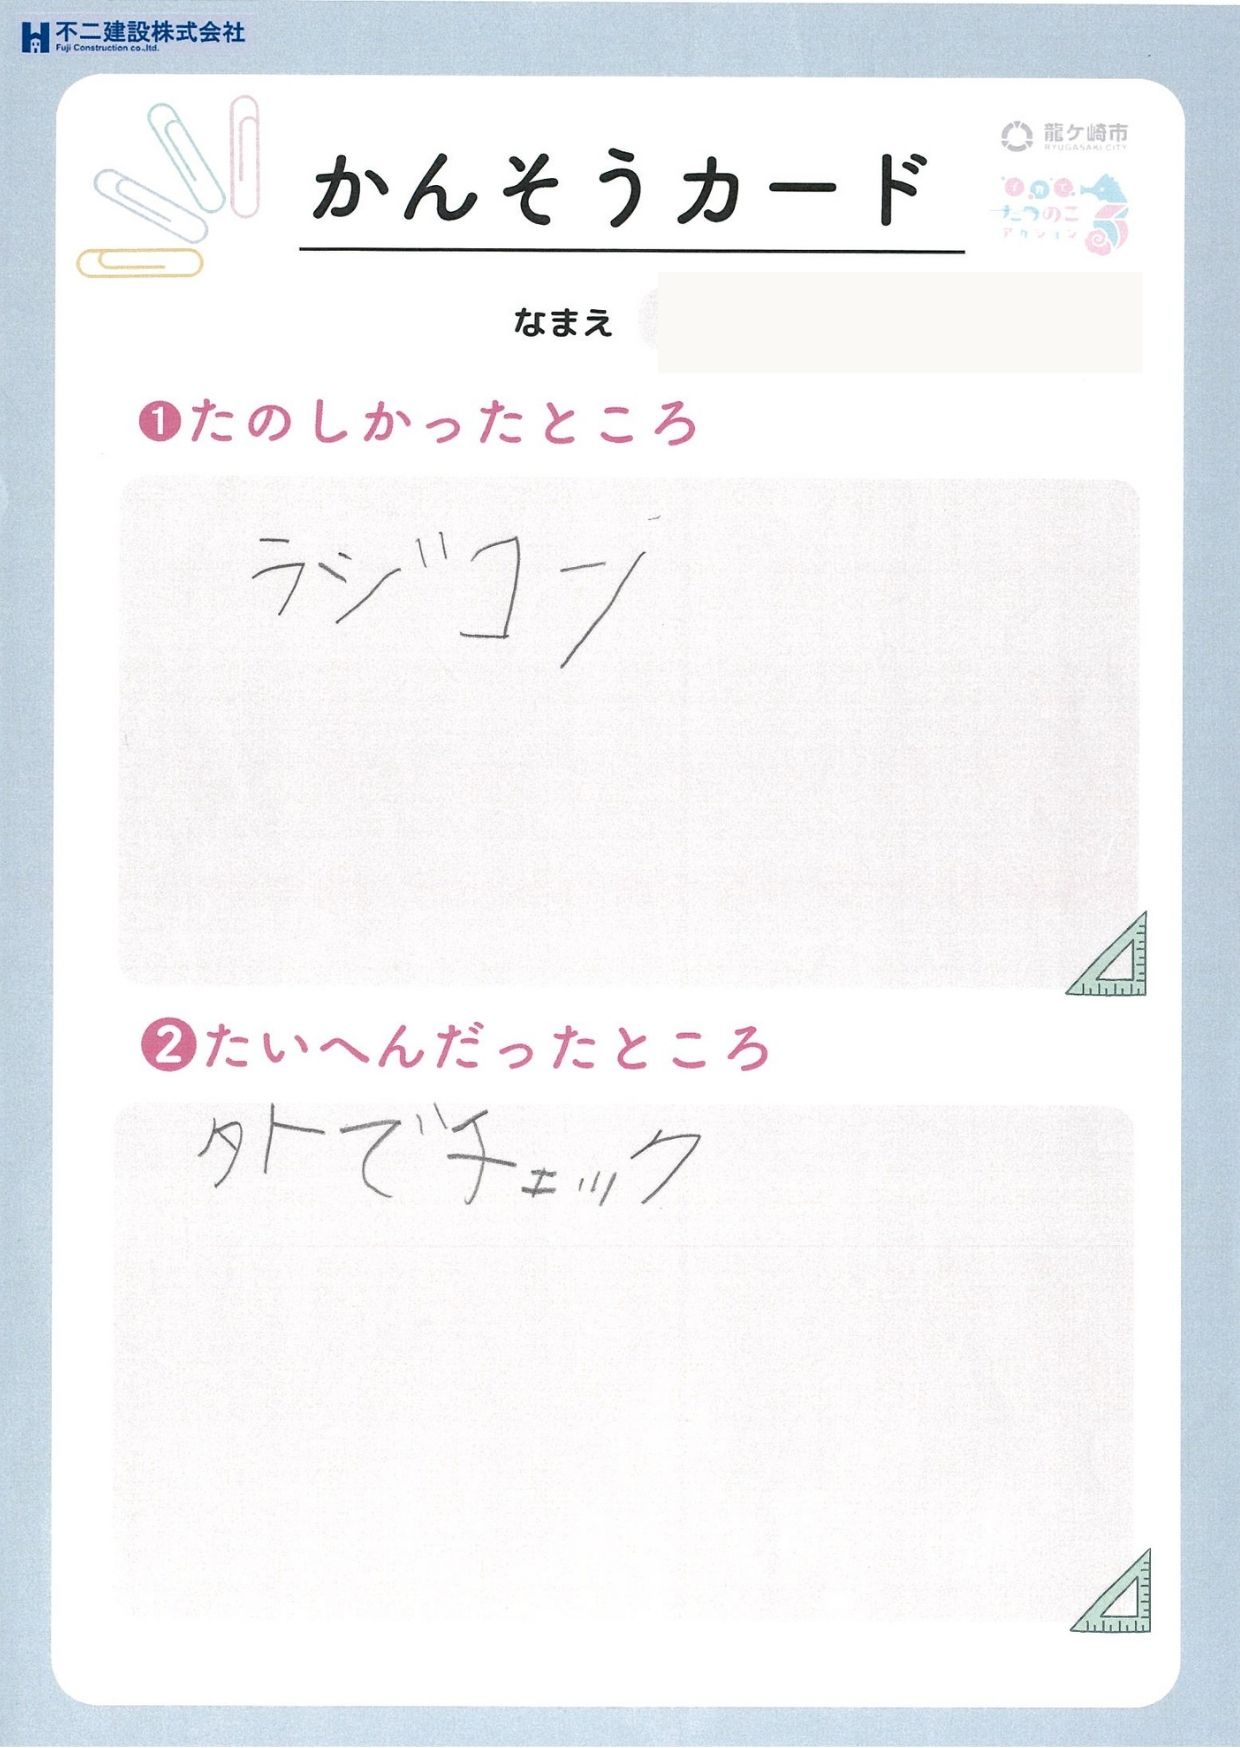 不二建設株式会社
Fuji Construction co.,ltd.
龍ケ崎市
RYUGASAKI CITY
かんそうカード
子育て
たつのこ
アクション
なまえ
❶たのしかったところ
ラジコン
❷たいへんだったところ
外でチェック